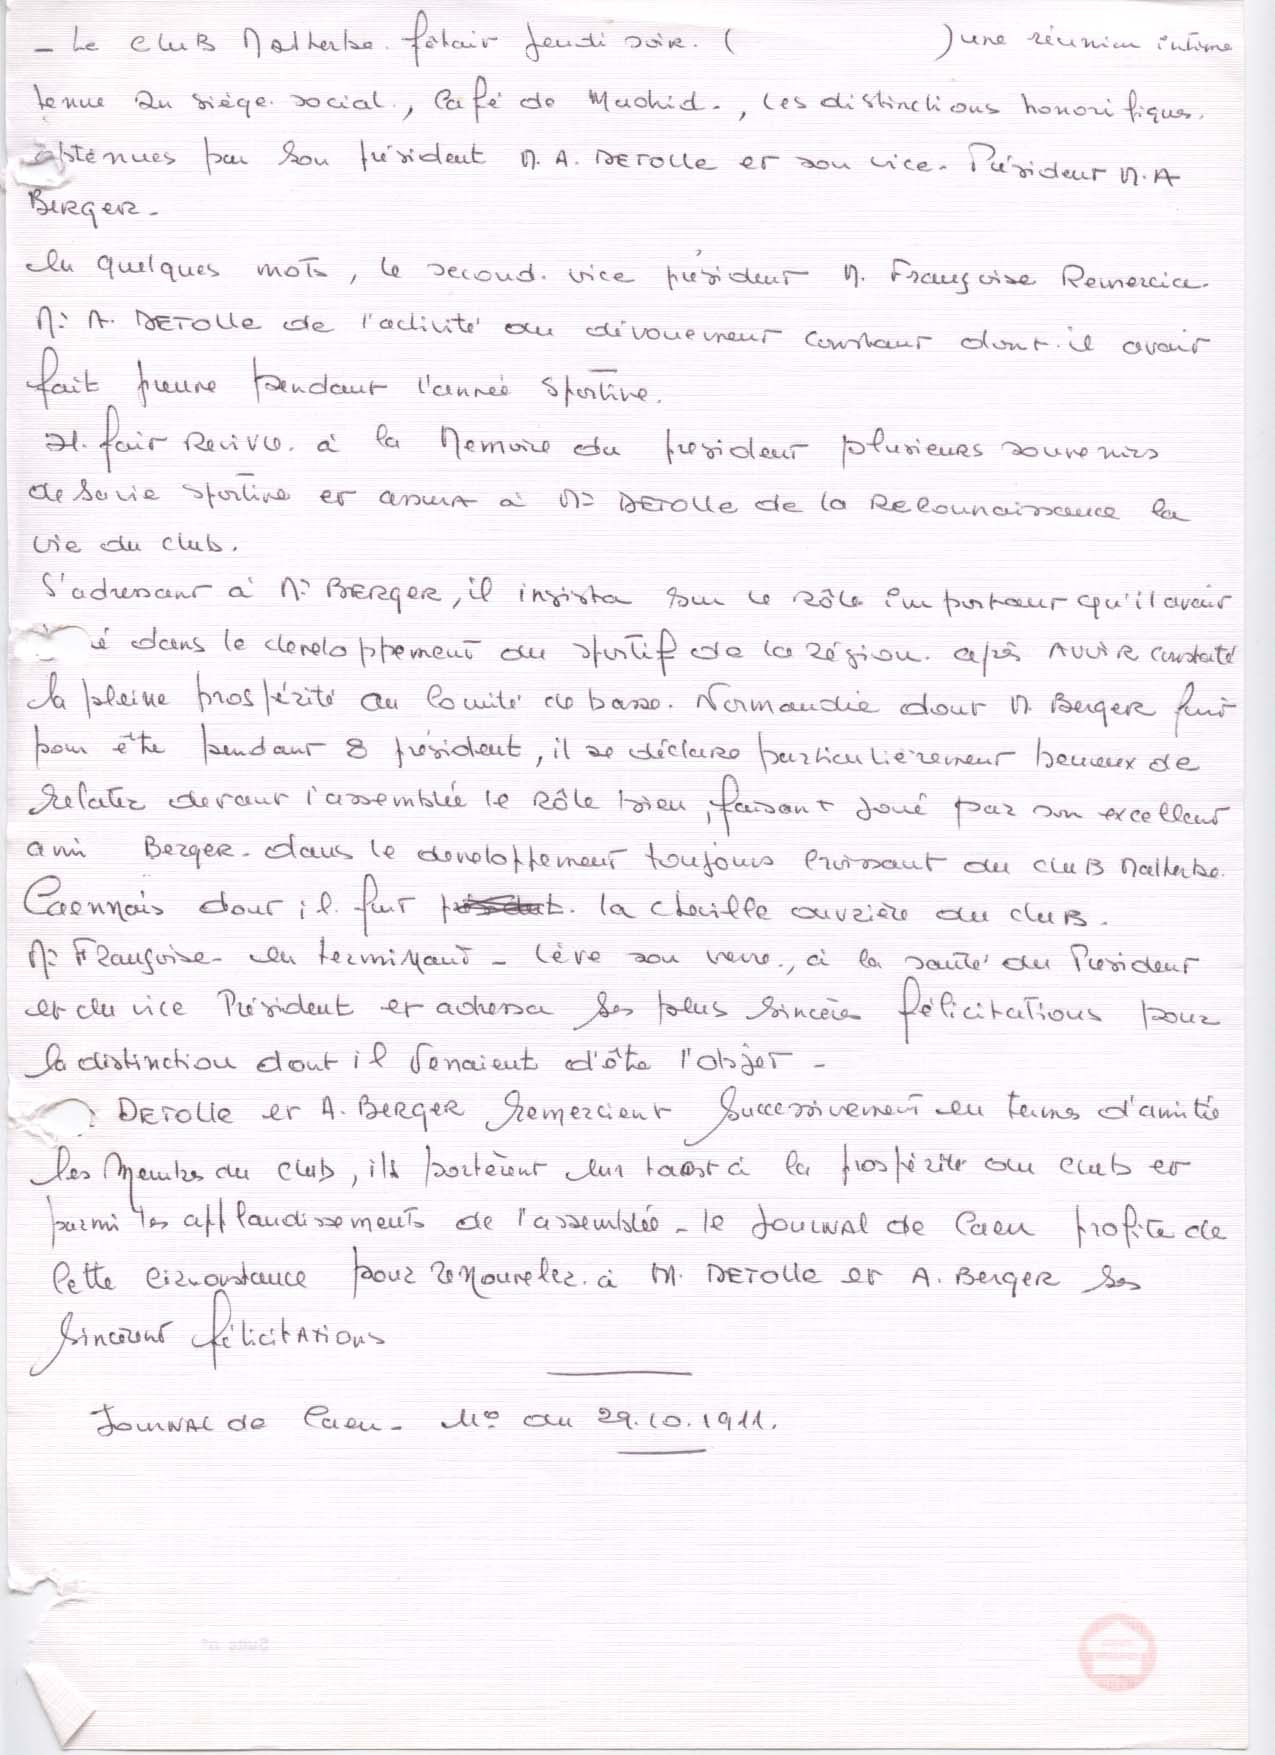 - Le CLUB Malherbe. fêtait jeudi soir. ( ) une réunion intime
tenue au siège. social., Café de Madrid., les distinctions honorifiques.
obtenues par son président M. A. DETOLLE et son vice. Président M. A
BERGER -
En quelques mots, le second. vice président M. Françoise Remercie.
Mr A. DETOLLE de l'activité du dévouement constant dont. il avait
fait preuve pendant l'année sportive.
Il. fait Revivre. à la Memoire du president plusieurs souvenirs
de sa vie sportive et assura à Mr DETOLLE de la Reconnaissance la
vie du club.
S'adressant à Mr BERGER, il insista sur le rôle important qu'il avait
é dans le developpement du sportif de la région. après AVOIR constaté
la pleine prospérité du Comité de basse. Normandie dont M. Berger fut
pour être pendant 8 président, il se déclare particulièrement heureux de
relater devant l'assemblée le rôle bien, faisant joué par son excellent
ami Berger. dans le developpement toujours croissant du CLUB Malherbe.
Caennais dont il. fut la cheville ouvrière du CLUB.
Mr Françoise - en terminant - lève son verre., à la santé du President
et du vice Président et adressa ses plus sincères félicitations pour
la distinction dont il venaient d'être l'objet -
DETOLLE et A. BERGER remercient successivement en termes d'amitié
les Membres du club, ils portèrent un toast à la prospérité du club et
parmi les applaudissements de l'assemblée - le JOURNAL de Caen profite de
cette circonstance pour renouveler. à M. DETOLLE et A. BERGER ses
sincères félicitations
JOURNAL de Caen - No du 29.10.1911.
Suite n°